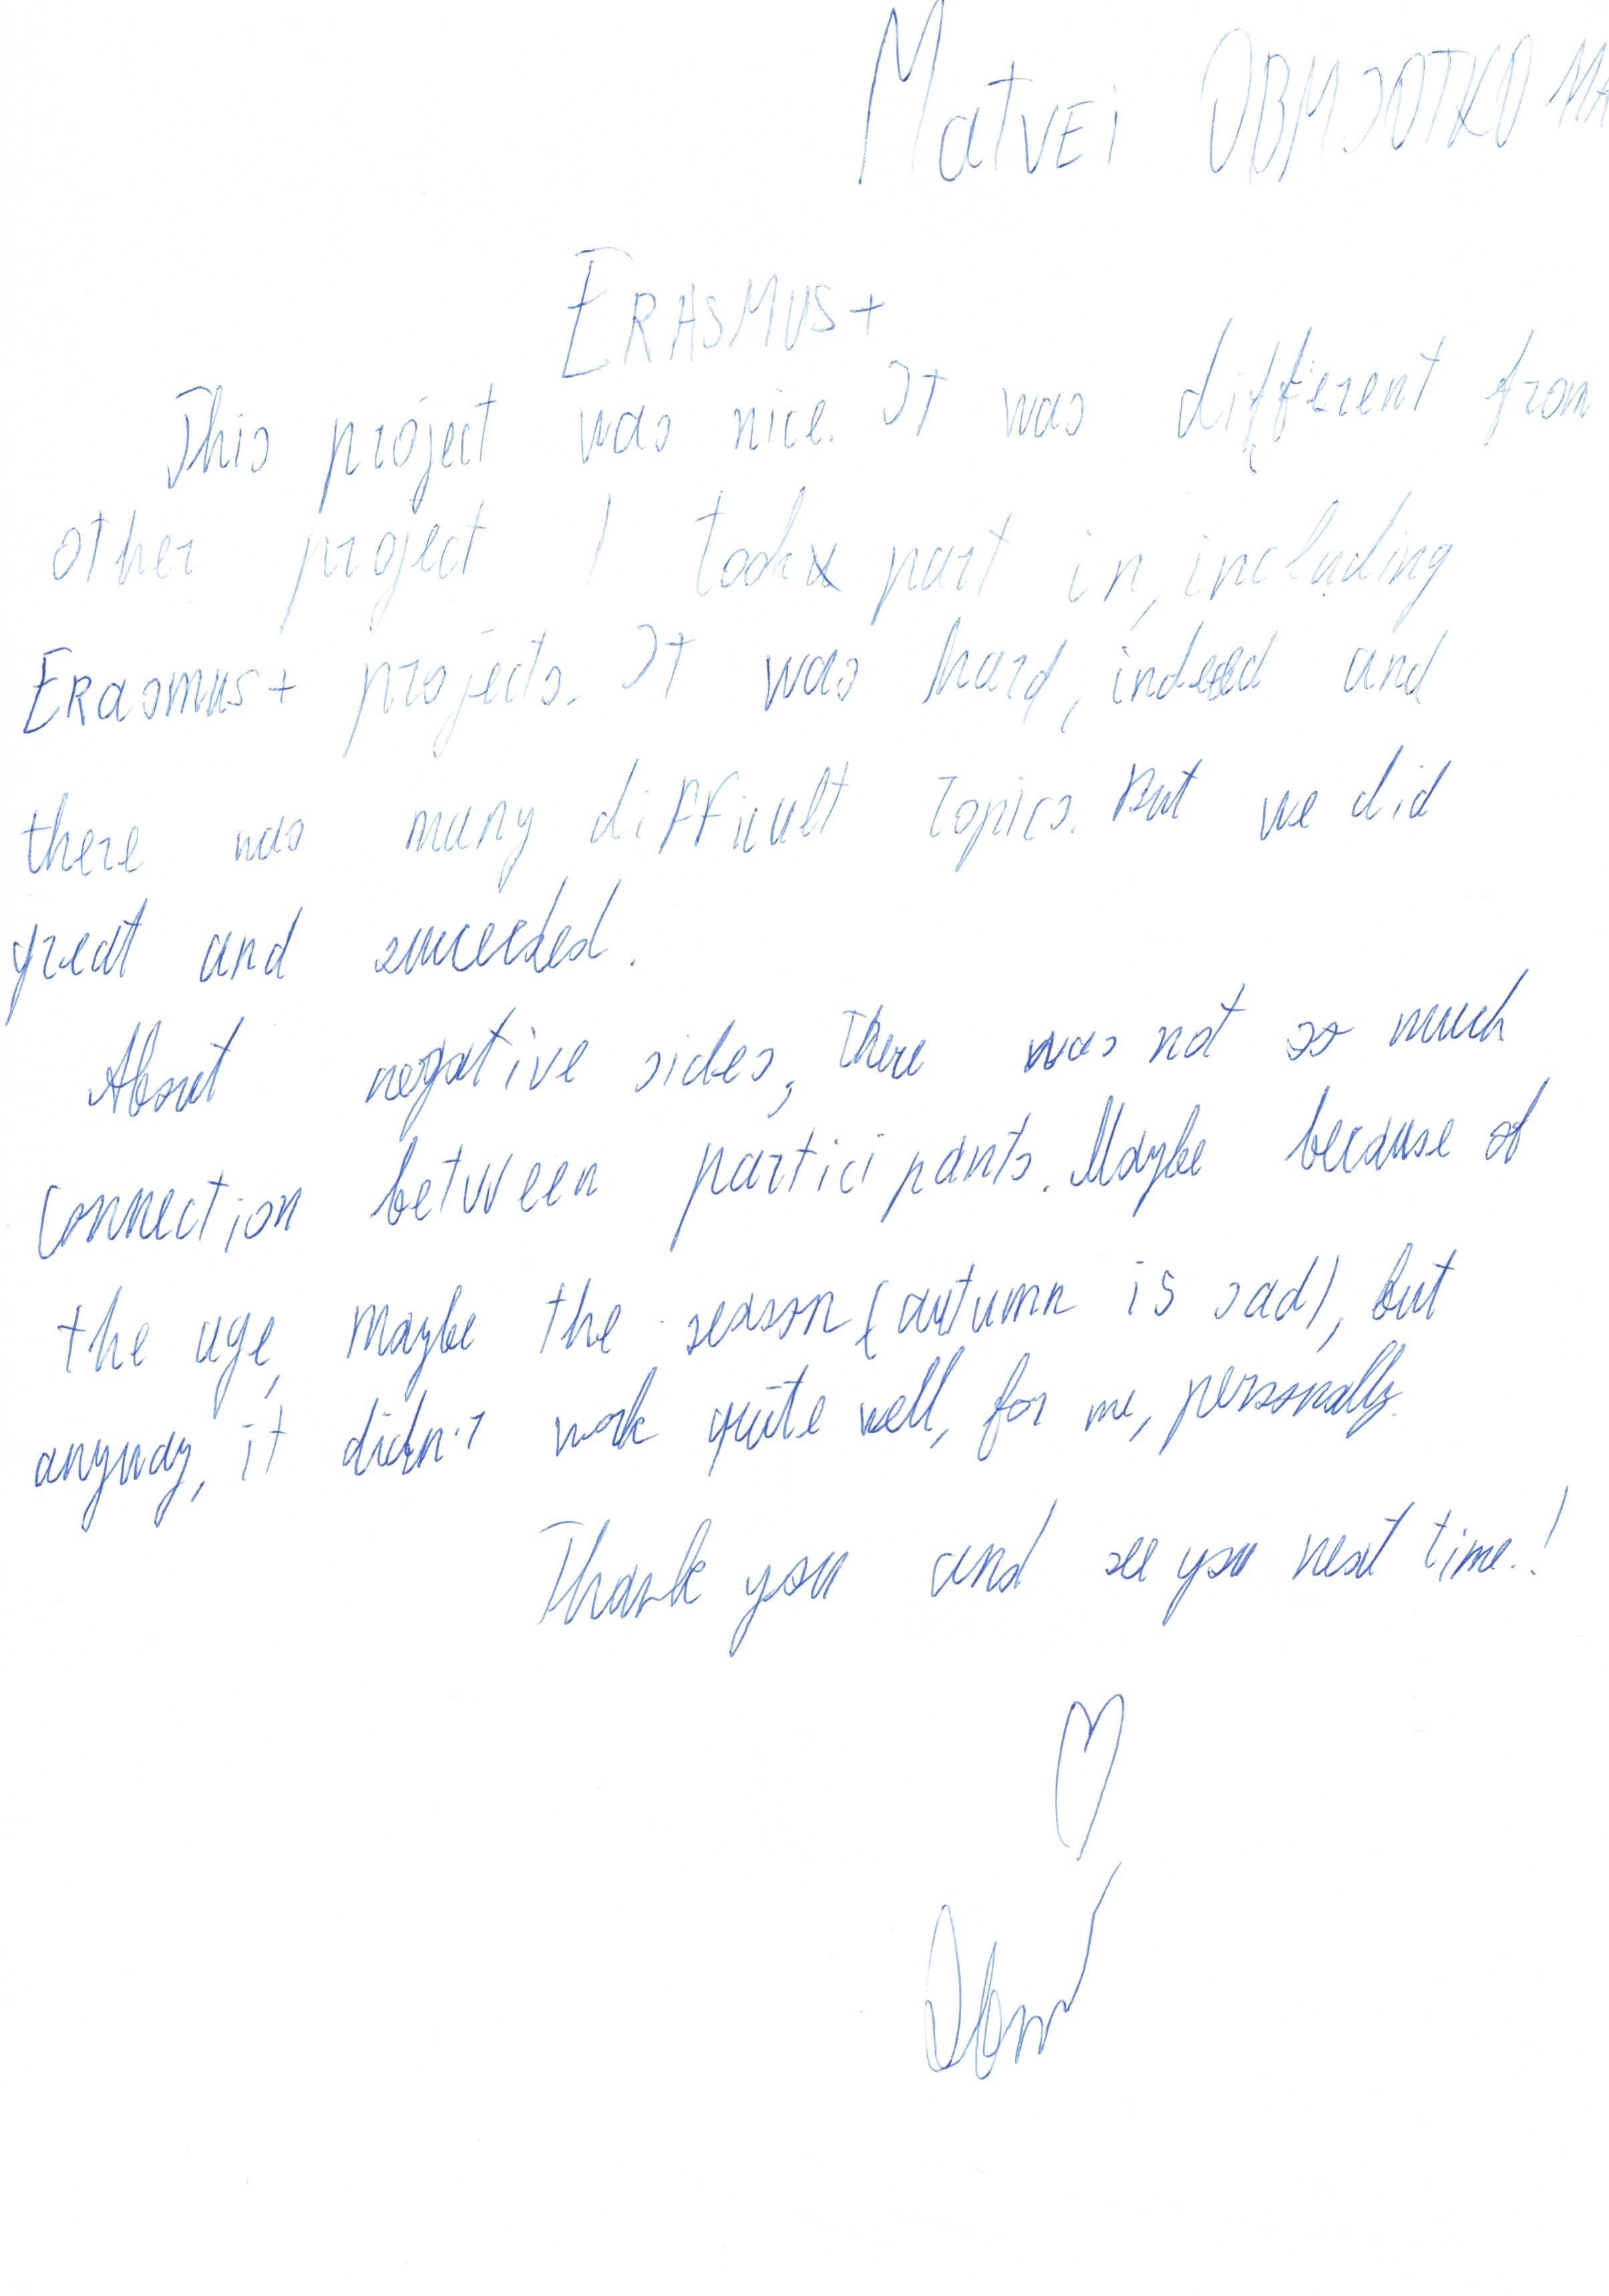 Matvei OBMJOTKO MA
ERASMUS+
This project was nice. It was different from
other project I took part in, including
Erasmus+ projects. It was hard, indeed and
there was many difficult topics. But we did
great and succeeded.
About negative sides, there was not so much
connection between participants. Maybe because of
the age, maybe the season (autumn is sad), but
anyway, it didn't work quite well, for me, personally.
Thank you and see you next time!